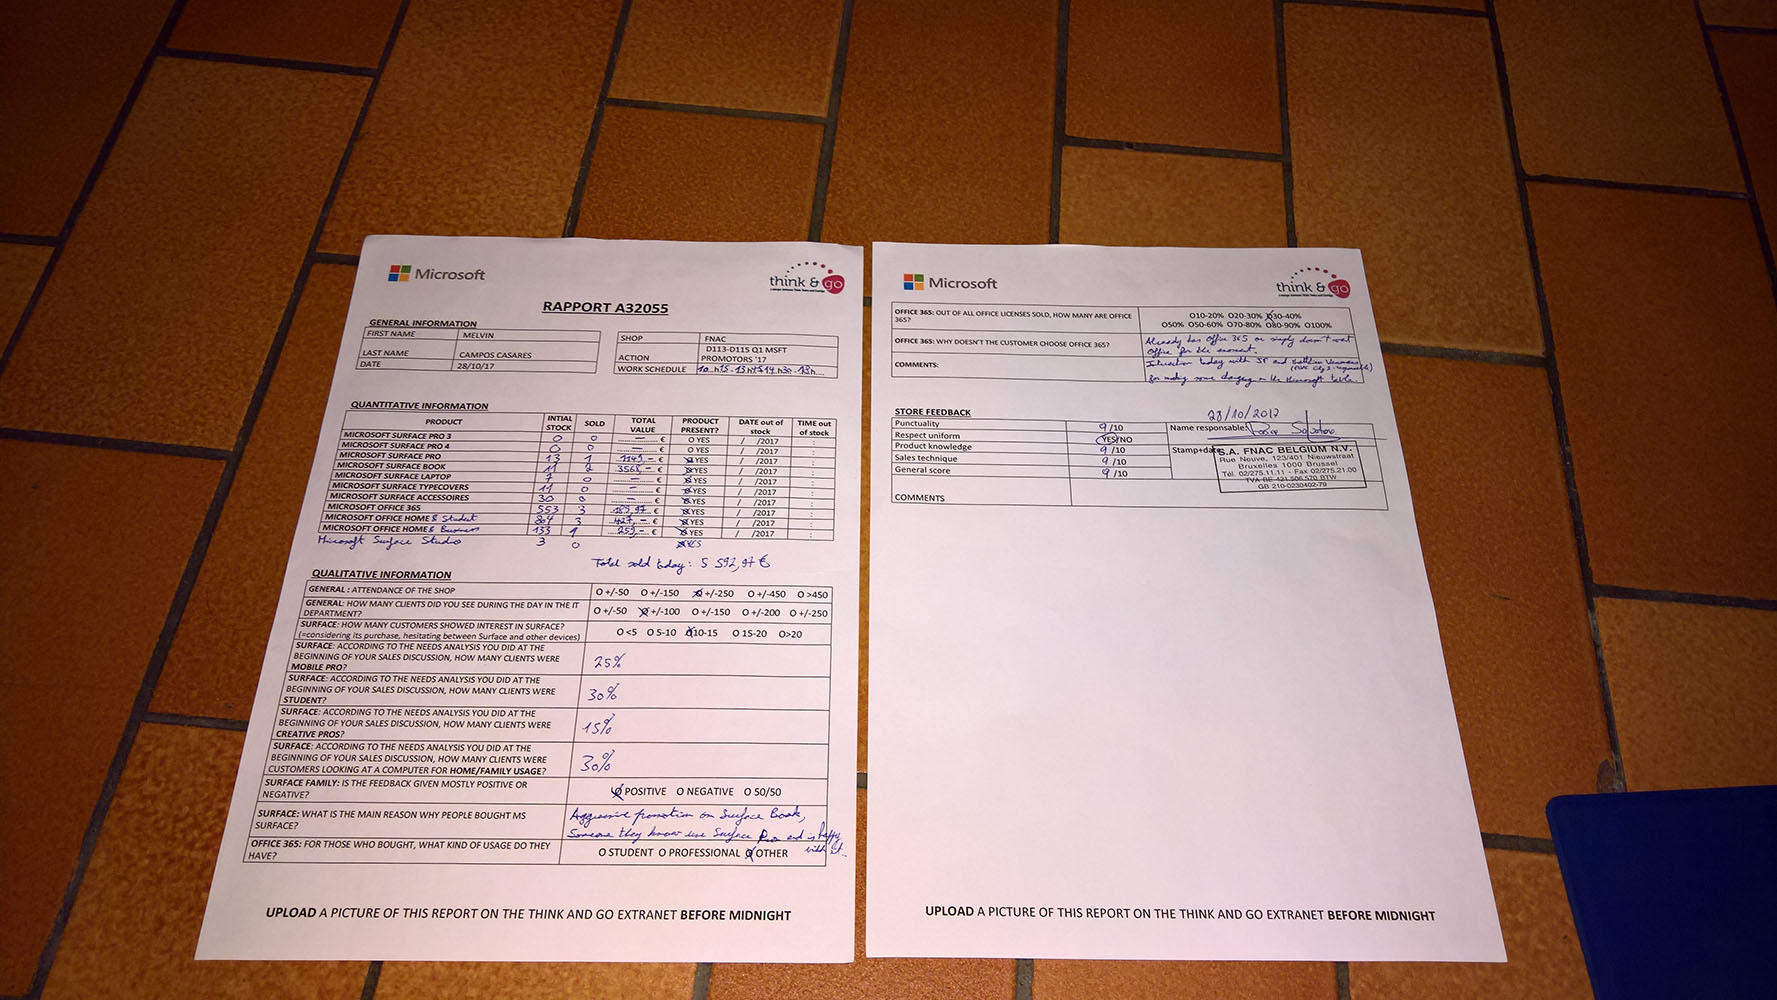 Microsoft
think & go
RAPPORT A32055
GENERAL INFORMATION
FIRST NAME MELVIN
LAST NAME CAMPOS CASARES
DATE 28/10/17
SHOP FNAC
ACTION D113-D115 Q1 MSFT PROMOTORS '17
WORK SCHEDULE
QUANTITATIVE INFORMATION
PRODUCT INTIAL STOCK SOLD TOTAL VALUE PRODUCT PRESENT? DATE out of stock TIME out of stock
MICROSOFT SURFACE PRO 3 0 0 — € O YES / /2017 :
MICROSOFT SURFACE PRO 4 0 0 — € O YES / /2017 :
MICROSOFT SURFACE PRO 13 1 1149,- € YES / /2017 :
MICROSOFT SURFACE BOOK 11 2 € YES / /2017 :
MICROSOFT SURFACE LAPTOP 7 0 — € YES / /2017 :
MICROSOFT SURFACE TYPECOVERS 11 0 — € YES / /2017 :
MICROSOFT SURFACE ACCESSOIRES 30 0 — € YES / /2017 :
MICROSOFT OFFICE 365 553 3 € YES / /2017 :
MICROSOFT OFFICE HOME & Student 3 427,- € YES / /2017 :
MICROSOFT OFFICE HOME & Business 133 1 € YES / /2017 :
Microsoft Surface Studio 3 0 YES
Total sold today: 5 592,97 €
QUALITATIVE INFORMATION
GENERAL : ATTENDANCE OF THE SHOP O +/-50 O +/-150 O +/-250 O +/-450 O >450
GENERAL: HOW MANY CLIENTS DID YOU SEE DURING THE DAY IN THE IT
DEPARTMENT? O +/-50 O +/-100 O +/-150 O +/-200 O +/-250
SURFACE: HOW MANY CUSTOMERS SHOWED INTEREST IN SURFACE?
(=considering its purchase, hesitating between Surface and other devices) O <5 O 5-10 O 10-15 O 15-20 O >20
SURFACE: ACCORDING TO THE NEEDS ANALYSIS YOU DID AT THE
BEGINNING OF YOUR SALES DISCUSSION, HOW MANY CLIENTS WERE
MOBILE PRO? 25%
SURFACE: ACCORDING TO THE NEEDS ANALYSIS YOU DID AT THE
BEGINNING OF YOUR SALES DISCUSSION, HOW MANY CLIENTS WERE
STUDENT? 30%
SURFACE: ACCORDING TO THE NEEDS ANALYSIS YOU DID AT THE
BEGINNING OF YOUR SALES DISCUSSION, HOW MANY CLIENTS WERE
CREATIVE PROS? 15%
SURFACE: ACCORDING TO THE NEEDS ANALYSIS YOU DID AT THE
BEGINNING OF YOUR SALES DISCUSSION, HOW MANY CLIENTS WERE
CUSTOMERS LOOKING AT A COMPUTER FOR HOME/FAMILY USAGE? 30%
SURFACE FAMILY: IS THE FEEDBACK GIVEN MOSTLY POSITIVE OR
NEGATIVE? O POSITIVE O NEGATIVE O 50/50
SURFACE: WHAT IS THE MAIN REASON WHY PEOPLE BOUGHT MS
SURFACE?
Aggressive promotion on Surface Book,
Someone they know use Surface Pro and is happy
with it.
OFFICE 365: FOR THOSE WHO BOUGHT, WHAT KIND OF USAGE DO THEY
HAVE? O STUDENT O PROFESSIONAL O OTHER
UPLOAD A PICTURE OF THIS REPORT ON THE THINK AND GO EXTRANET BEFORE MIDNIGHT
Microsoft
think & go
OFFICE 365: OUT OF ALL OFFICE LICENSES SOLD, HOW MANY ARE OFFICE
365?
O10-20% O20-30% O30-40%
O50% O50-60% O70-80% O80-90% O100%
OFFICE 365: WHY DOESN'T THE CUSTOMER CHOOSE OFFICE 365?
Already has Office 365 or simply doesn't want
Office for the moment.
COMMENTS:
today with and
for making some changing on the Microsoft table.
STORE FEEDBACK
28/10/2017
Punctuality 9/10 Name responsable:
Respect uniform YES/NO
Product knowledge 9/10 Stamp+date
Sales technique 9/10
General score 9/10
COMMENTS
S.A. FNAC BELGIUM N.V.
Rue Neuve, 123/401 Nieuwstraat
Bruxelles 1000 Brussel
Tél. 02/275.11.11 - Fax 02/275.21.00
TVA BE 421.506.570 BTW
GB 210-0230402-79
UPLOAD A PICTURE OF THIS REPORT ON THE THINK AND GO EXTRANET BEFORE MIDNIGHT